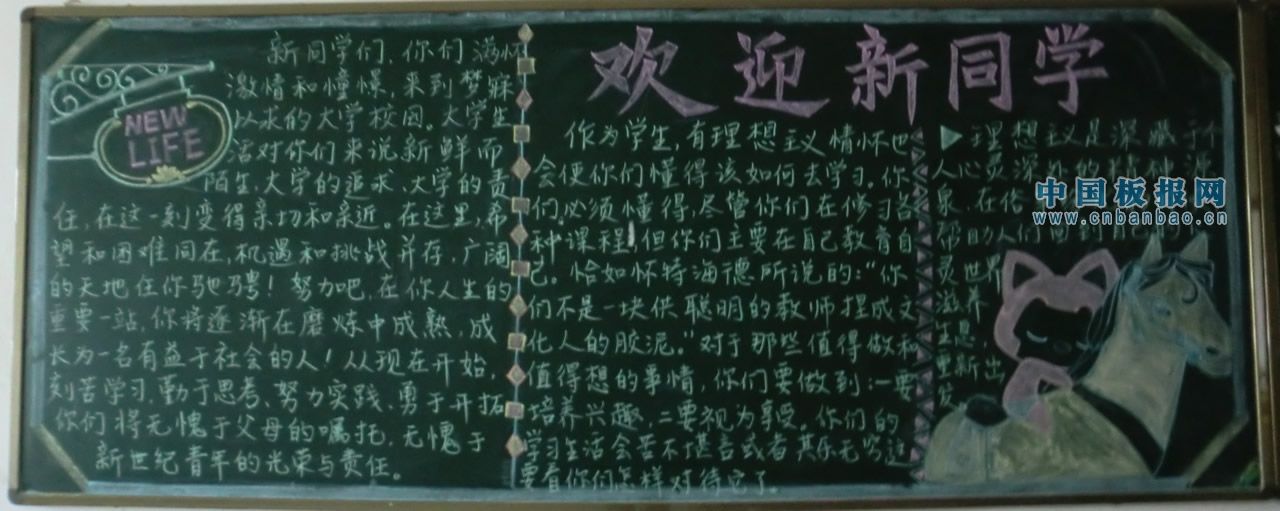 欢迎新同学
NEW
LIFE
新同学们，你们满怀
激情和憧憬，来到梦寐
以求的大学校园。大学生
活对你们来说新鲜而
陌生，大学的追求、大学的责
任，在这一刻变得亲切和亲近。在这里，希
望和困难同在，机遇和挑战并存，广阔
的天地任你驰骋！努力吧，在你人生的
重要一站，你将逐渐在磨炼中成熟，成
长为一名有益于社会的人！从现在开始，
刻苦学习，勤于思考，努力实践，勇于开拓
你们将无愧于父母的嘱托，无愧于
新世纪青年的光荣与责任。
作为学生，有理想主义情怀也
会使你们懂得该如何去学习。你
们必须懂得，尽管你们在修习各
种课程，但你们主要在自己教育自
己。恰如怀特海德所说的：“你
们不是一块供聪明的教师捏成文
化人的胶泥。”对于那些值得做和
值得想的事情，你们要做到：一要
培养兴趣，二要视为享受。你们的
学习生活会苦不堪言或者其乐无穷这
要看你们怎样对待它了。
理想主义是深藏于个
人心灵深处的精神源
泉，在
帮助人们回到自己的
灵世界
滋养
生息
重新出
发
中国板报网
www.cnbanbao.cn